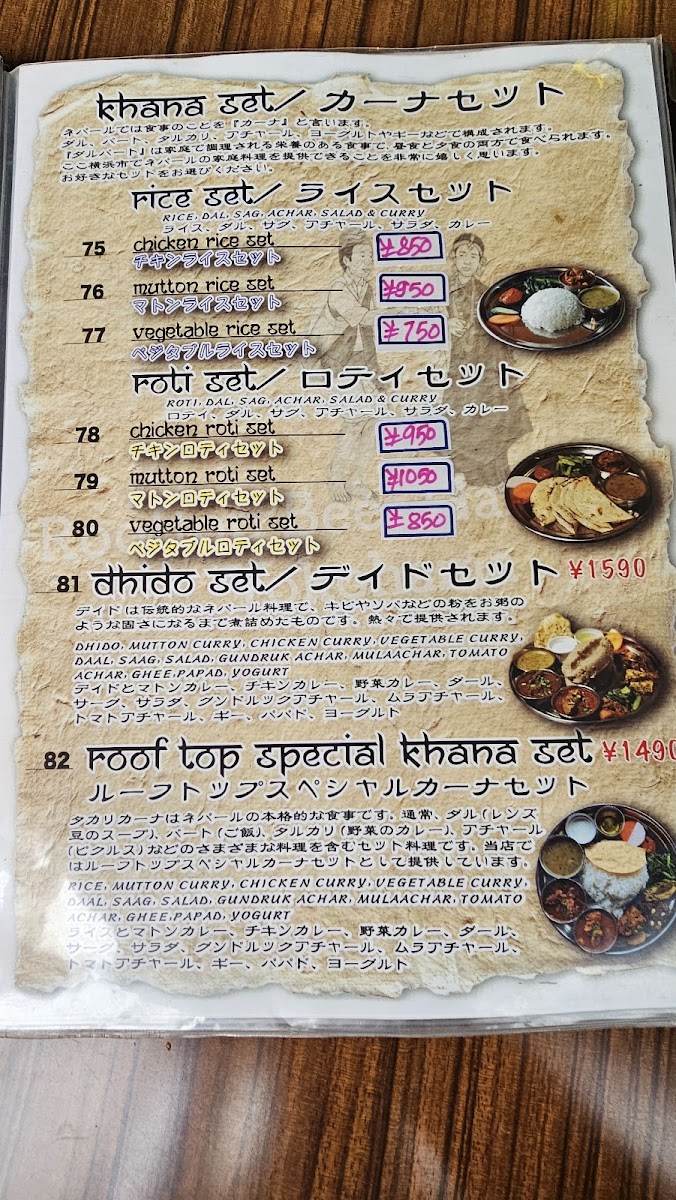 khana set/ カーナセット
ネパールでは食事のことを『カーナ』と言います。
ダル、バート、タルカリ、アチャール、ヨーグルトやギーなどで構成されます。
『ダルバート』は家庭で調理される栄養のある食事で、昼食と夕食の両方で食べられます。
ここ横浜市でネパールの家庭料理を提供できることを非常に嬉しく思います。
お好きなセットをお選びください。
rice set/ ライスセット
RICE, DAL, SAG, ACHAR, SALAD & CURRY
ライス、ダル、サグ、アチャール、サラダ、カレー
75 chicken rice set ¥850
チキンライスセット
76 mutton rice set ¥950
マトンライスセット
77 vegetable rice set ¥750
ベジタブルライスセット
roti set/ ロティセット
ROTI, DAL, SAG, ACHAR, SALAD & CURRY
ロティ、ダル、サグ、アチャール、サラダ、カレー
78 chicken roti set ¥950
チキンロティセット
79 mutton roti set ¥1050
マトンロティセット
80 vegetable roti set ¥850
ベジタブルロティセット
81 dhido set/ デイドセット ¥1590
デイドは伝統的なネパール料理で、キビやソバなどの粉をお粥の
ような固さになるまで煮詰めたものです。熱々で提供されます。
DHIDO, MUTTON CURRY, CHICKEN CURRY, VEGETABLE CURRY,
DAAL, SAAG, SALAD, GUNDRUK ACHAR, MULAACHAR, TOMATO
ACHAR, GHEE, PAPAD, YOGURT
デイドとマトンカレー、チキンカレー、野菜カレー、ダール、
サーグ、サラダ、グンドルックアチャール、ムラアチャール、
トマトアチャール、ギー、パパド、ヨーグルト
82 roof top special khana set ¥1490
ルーフトップスペシャルカーナセット
タカリカーナはネパールの本格的な食事です。通常、ダル(レンズ
豆のスープ)、バート(ご飯)、タルカリ(野菜のカレー)、アチャール
(ピクルス)などのさまざまな料理を含むセット料理です。当店で
はルーフトップスペシャルカーナセットとして提供しています。
RICE, MUTTON CURRY, CHICKEN CURRY, VEGETABLE CURRY,
DAAL, SAAG, SALAD, GUNDRUK ACHAR, MULAACHAR, TOMATO
ACHAR, GHEE, PAPAD, YOGURT
ライスとマトンカレー、チキンカレー、野菜カレー、ダール、
サーグ、サラダ、グンドルックアチャール、ムラアチャール、
トマトアチャール、ギー、パパド、ヨーグルト